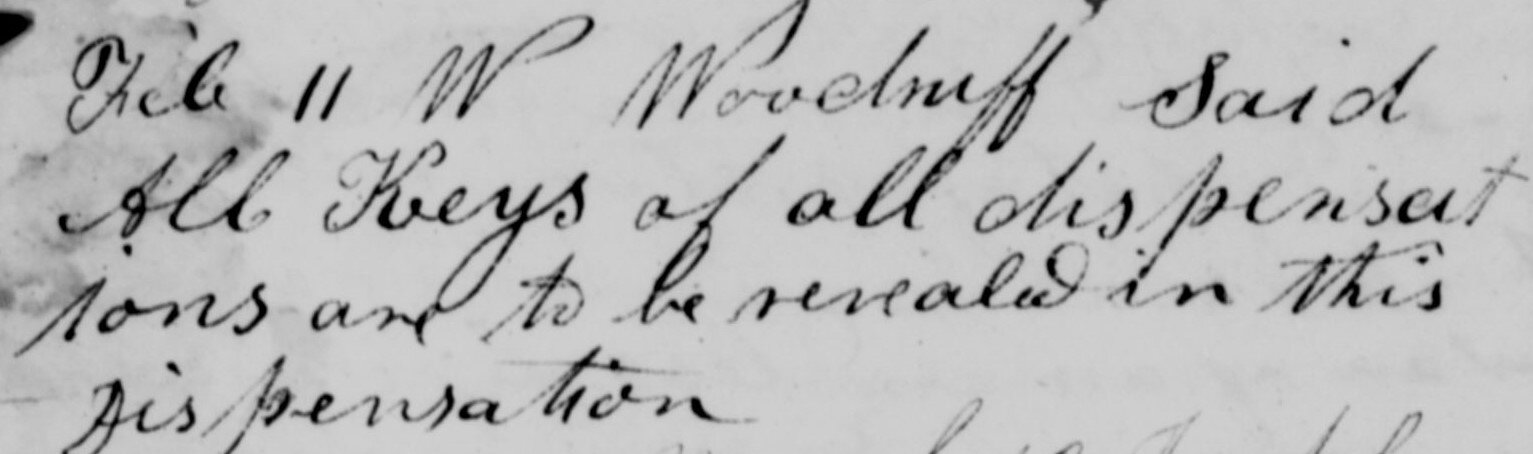 Feb 11 W Woodruff Said
All Keys of all dispensat
ions are to be revealed in this
Dispensation